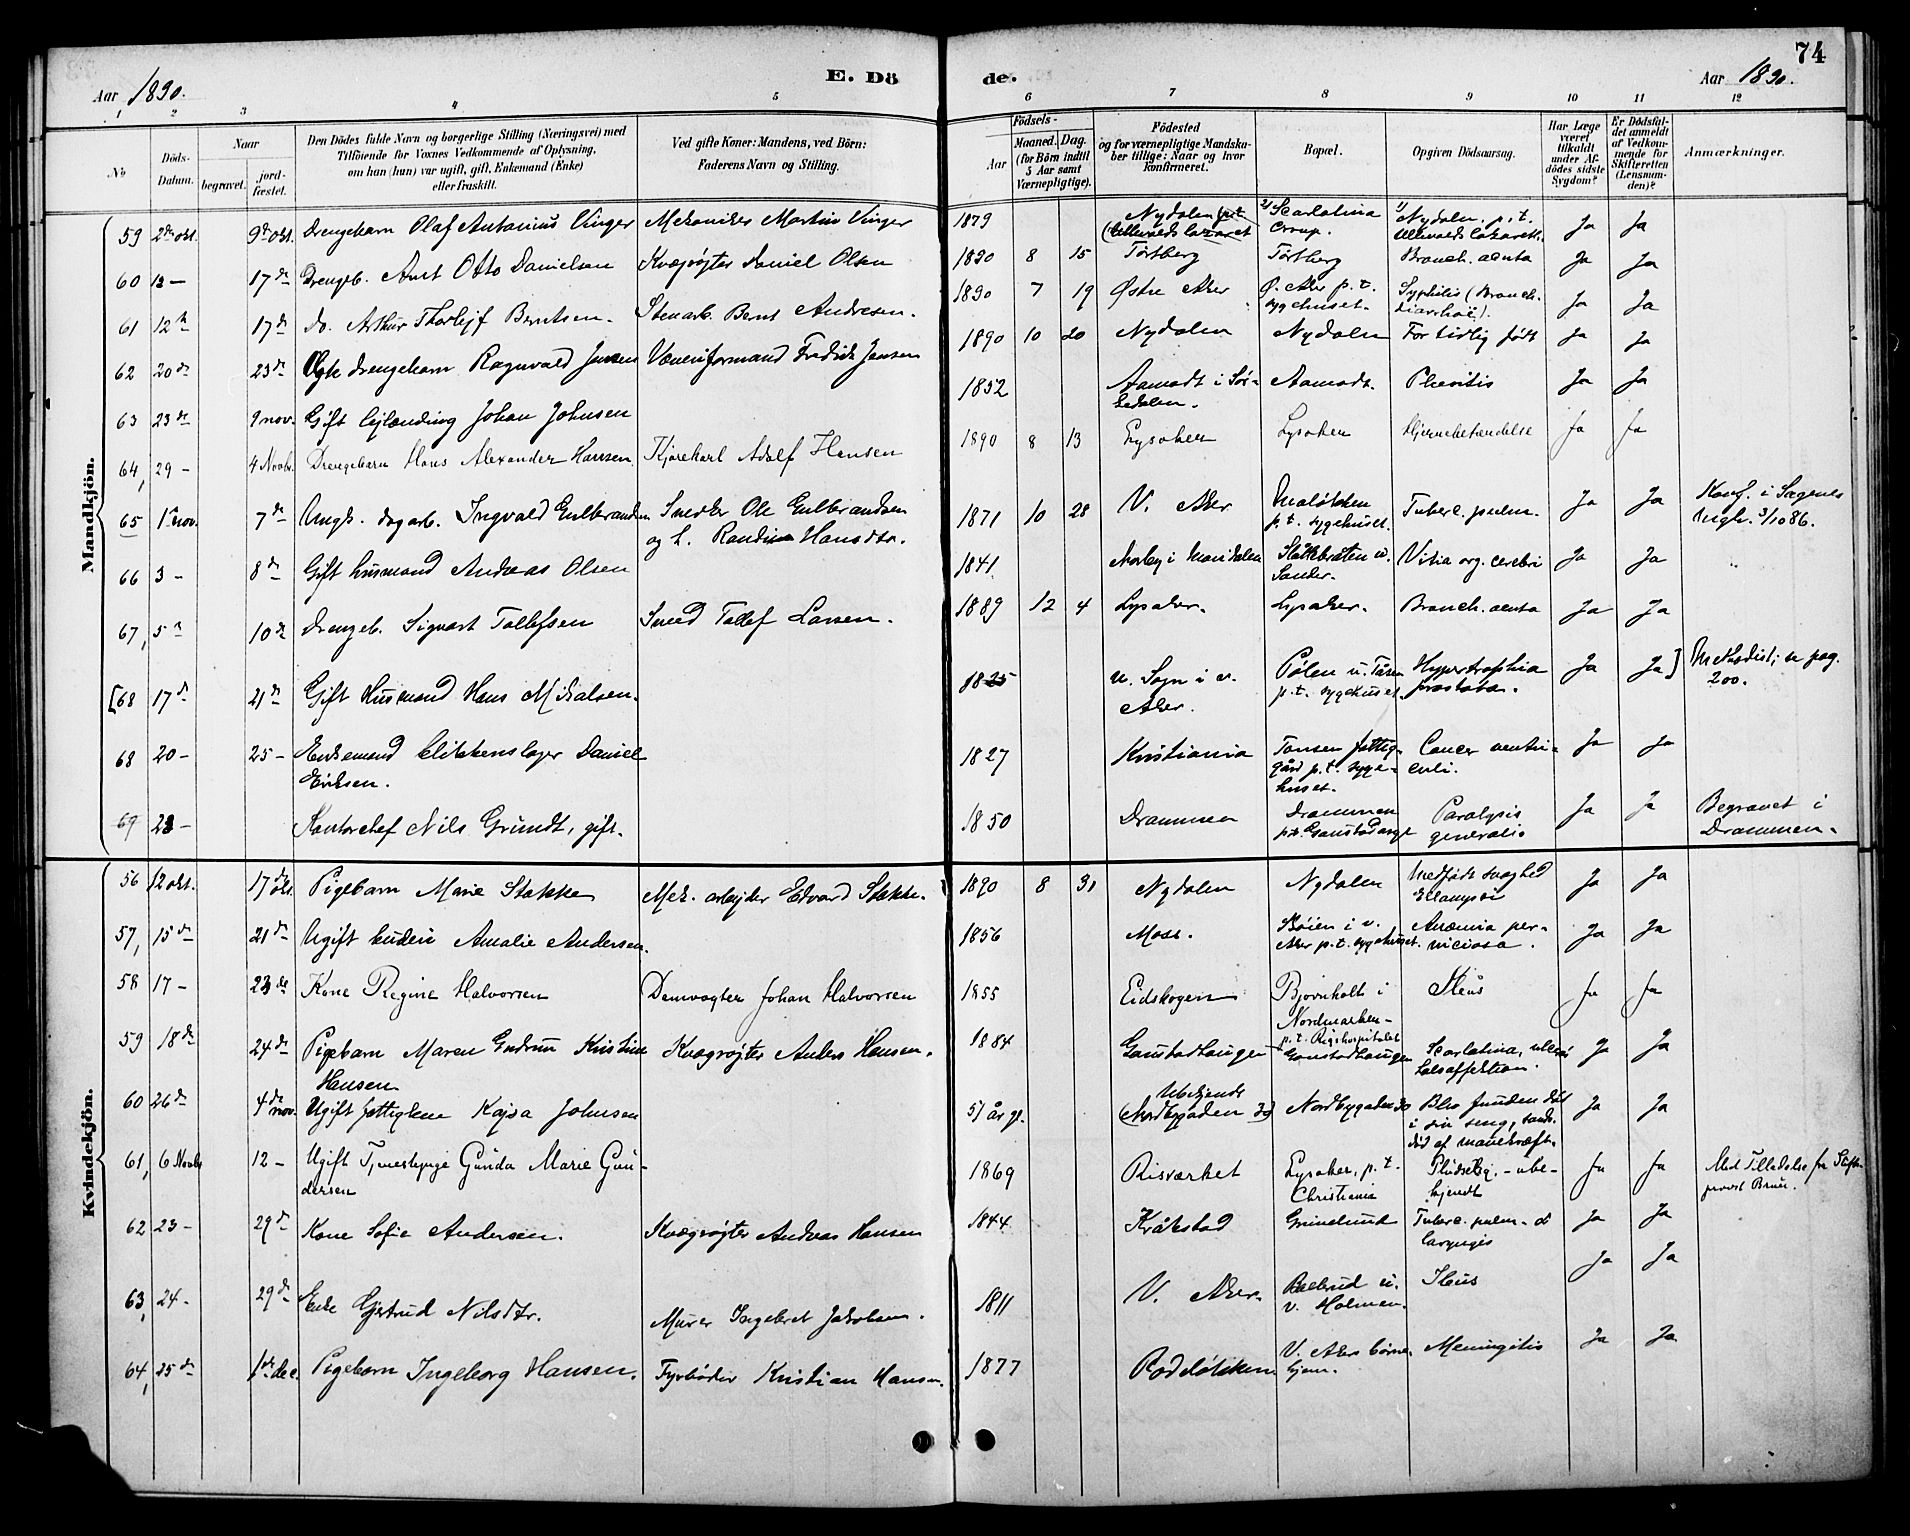 74
Aar 1890.
E. Dö
de.
Aar 1890.
1 2 3 4 5 6 7 8 9 10 11 12
No
Döds-Datum.
Naar
begravet.
jord-fæstet.
Den Dödes fulde Navn og borgerlige Stilling (Næringsvei) med
Tilföiende for Voxnes Vedkommende af Oplysning,
om han (hun) var ugift, gift, Enkemand (Enke)
eller fraskilt.
Ved gifte Koner: Mandens, ved Börn:
Faderens Navn og Stilling.
Födsels-
Aar
Maaned. Dag.
(for Börn indtil
5 Aar samt
Værnepligtige).
Födested
og for værnepligtige Mandska-
ber tillige: Naar og hvor
konfirmeret.
Bopæl.
Opgiven Dödsaarsag.
Har Læge
været
tilkaldt
under Af-
dödes sidste
Sygdom?
Er Dödsfal-
det anmeldt
af Vedkom-
mende for
Skifteretten
(Lensman-
den)?
Anmærkninger.
Mandkjön.
59 2den okt. 9de okt. Drengebarn Olaf Antonius Vinger Mekaniker Martin Vinger 1879 Nydalen p.t. (Ullevolds lazaret 2) Scarlatina Croup. 1) Nydalen. p. t. Ullevolds lazarett. Ja Ja
60 12 — 17de Drengeb. Anst Otto Danielsen Kvægrøjter Daniel Olsen 1890 8 15 Tørtberg Tørtberg Bronch. acuta Ja Ja
61 12te 17de do. Arthur Thorlejf Berntsen. Stenarb. Bernt Andresen. 1890 7 19 Østre Aker Ø. Aker p. t. sygehuset. Syphilis (Bronch. diarrhoe). Ja Ja
62 20de 23de Ægte drengebarn Ragnvald Jensen Væveriformand Fredrik Jensen 1890 10 20 Nydalen Nydalen For tidlig født Ja Ja
63 23de 1 nov. Gift lejlænding Johan Johnsen 1852 Aamodt i Sør-kedalen. Aamodt. Pleuritis Ja Ja
64, 29 - 4 Novbr. Drengebarn Hans Alexander Hansen. Kjørekarl Adolf Hansen 1890 8 13 Lysaker Lysaker Hjernebetændelse Ja Ja
65 1ste nov. 7de Ungk. dagarb. Ingvald Gulbrandsen Snedker Ole Gulbrandsen og h. Randine Hansdtr. 1871 10 28 V. Aker Maløkken p. t. sygehuset. Tuberc. pulm. Ja Ja Konf. i Sagenes Mgh. 3/10 86.
66 3 - 8de Gift husmand Andreas Olsen 1841 Nordby i Maridalen Slåttebråten u. Sander. Vitia org. cerebri Ja Ja „
67, 5te 10de Drengeb. Sigvart Tollefsen Smed Tollef Larsen. 1889 12 4 Lysaker. Lysaker. Bronch. acuta Ja Ja
[68 17de 21de Gift Husmand Hans Mikalsen. 1825 u. Sogn i v. Aker. Pølen u. Tåsen p. t. sygehuset. Hypertrophia prostata. Ja Ja] Methodist; se pag. 200.
68 20 - 25 - Enkemand blikkenslager Daniel Eriksen. 1827 Kristiania Tonsen fattig-gård p. t. syge-huset. Cancer ventri-culi. Ja Ja
69 23 - Kontorchef Nils Grundt, gift. 1850 Drammen Drammen p.t. Gaustad asyl Paralysis generalis Ja Ja Begravet i Drammen.
Kvindekjön.
56 12 okt. 17de okt. Pigebarn Marie Stakke Mek. arbejder Edvard Stakke. 1890 8 31 Nydalen Nydalen Medfødt svaghed Eclampsi Ja Ja
57, 15de 21de Ugift budeie Amalie Andersen. 1856 Moss. Bøien i v. Aker p. t. sygehuset. Anæmia per-niciosa. Ja Ja
58 17 - 23de Kone Regine Halvorsen Damvogter Johan Halvorsen 1855 Eidskogen Bjørnholt i Nordmarken - p. t. Rigshospitalet Ileus Ja Ja
59 18de 24de Pigebarn Maren Gudrun Kristine Hansen Kvægrøjter Anders Hansen. 1884 Gaustadhaugen Gaustadhaugen Scarlatina, halsaffektion. Ja Ja
60 26de 4de nov. Ugift fattiglem Kajsa Johnsen 51 år gl. Ubekjendt (Nordbygaden 30) Nordbygaden 30 Blev funden død i sin seng, sands. død af mavekræft. Ja Ja
61, 6 Novbr 12 - Ugift Tjenestepige Gunda Marie Gun-dersen 1869 Risværket Lysaker, p. t. Christiania Pludselig. - ube-kjendt Ja Ja Med Tilladelse fra Stifts-provst Bruun.
62 23 - 29de Kone Sofie Andersen. Kvægrøjter Andreas Hansen 1844 Kråkstad Grinelund Tuberc. pulm. & laryngis Ja Ja
63, 24 - 29de Enke Gjertrud Nilsdtr. Murer Ingebret Jakobsen. 1811 V. Aker. Ballerud u. v. Holmen. Ileus Ja Ja
64, 25de 1ste dec. Pigebarn Ingeborg Hansen. Fyrbøder Kristian Hansen. 1877 Rodeløkken V. Akers børne-hjem. Meningitis Ja Ja